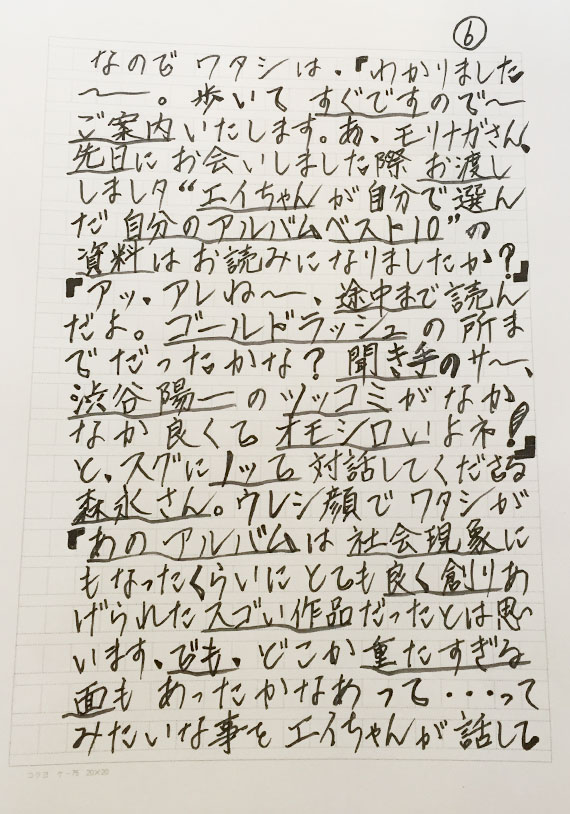 ⑥
なので ワタシは、『わかりました
〜〜。歩いて すぐですので〜
ご案内いたします。あ、モリナガさん、
先日に お会いしました際 お渡し
しましタ “エイちゃんが自分で選ん
だ 自分のアルバムベスト10”の
資料は お読みになりましたか?』
『アッ、アレね〜〜、途中まで読ん
だよ。ゴールドラッシュ の 所ま
でだったかな? 聞き手のサ〜、
渋谷陽一の ツッコミが なか
なか 良くて オモシロいよネ!』
と、スグに ノッて 対話してくださる
森永さん。ウレシ顔で ワタシが
『あの アルバムは 社会現象に
も なったくらいに とても良く創りあ
げられた スゴい作品だったとは思
います、でも、どこか 重たすぎる
面も あったかなあって・・・って
みたいな事を エイちゃんが 話して
コクヨ ケ-75 20×20